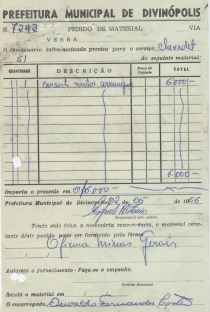 PREFEITURA MUNICIPAL DE DIVINÓPOLIS
N. 7242 PEDIDO DE MATERIAL VIA
VERBA
O funcionário infra-assinado precisa para o serviço
51 do seguinte material:
QUANTIDADE DESCRIÇÃO Preço da Unidade TOTAL
motor 6000-
6.000-
Importa o presente em 6.000-
Prefeitura Municipal de Divinópolis de 1966
Tendo sido feita a necessária concorrência, o material constante
deste pedido pode ser fornecido pela firma:
Oficina Minas Gerais
Autorizo o fornecimento - Faça-se o empenho.
Prefeito Municipal
Recebi o material em
O encarregado Oswaldo Fernandes